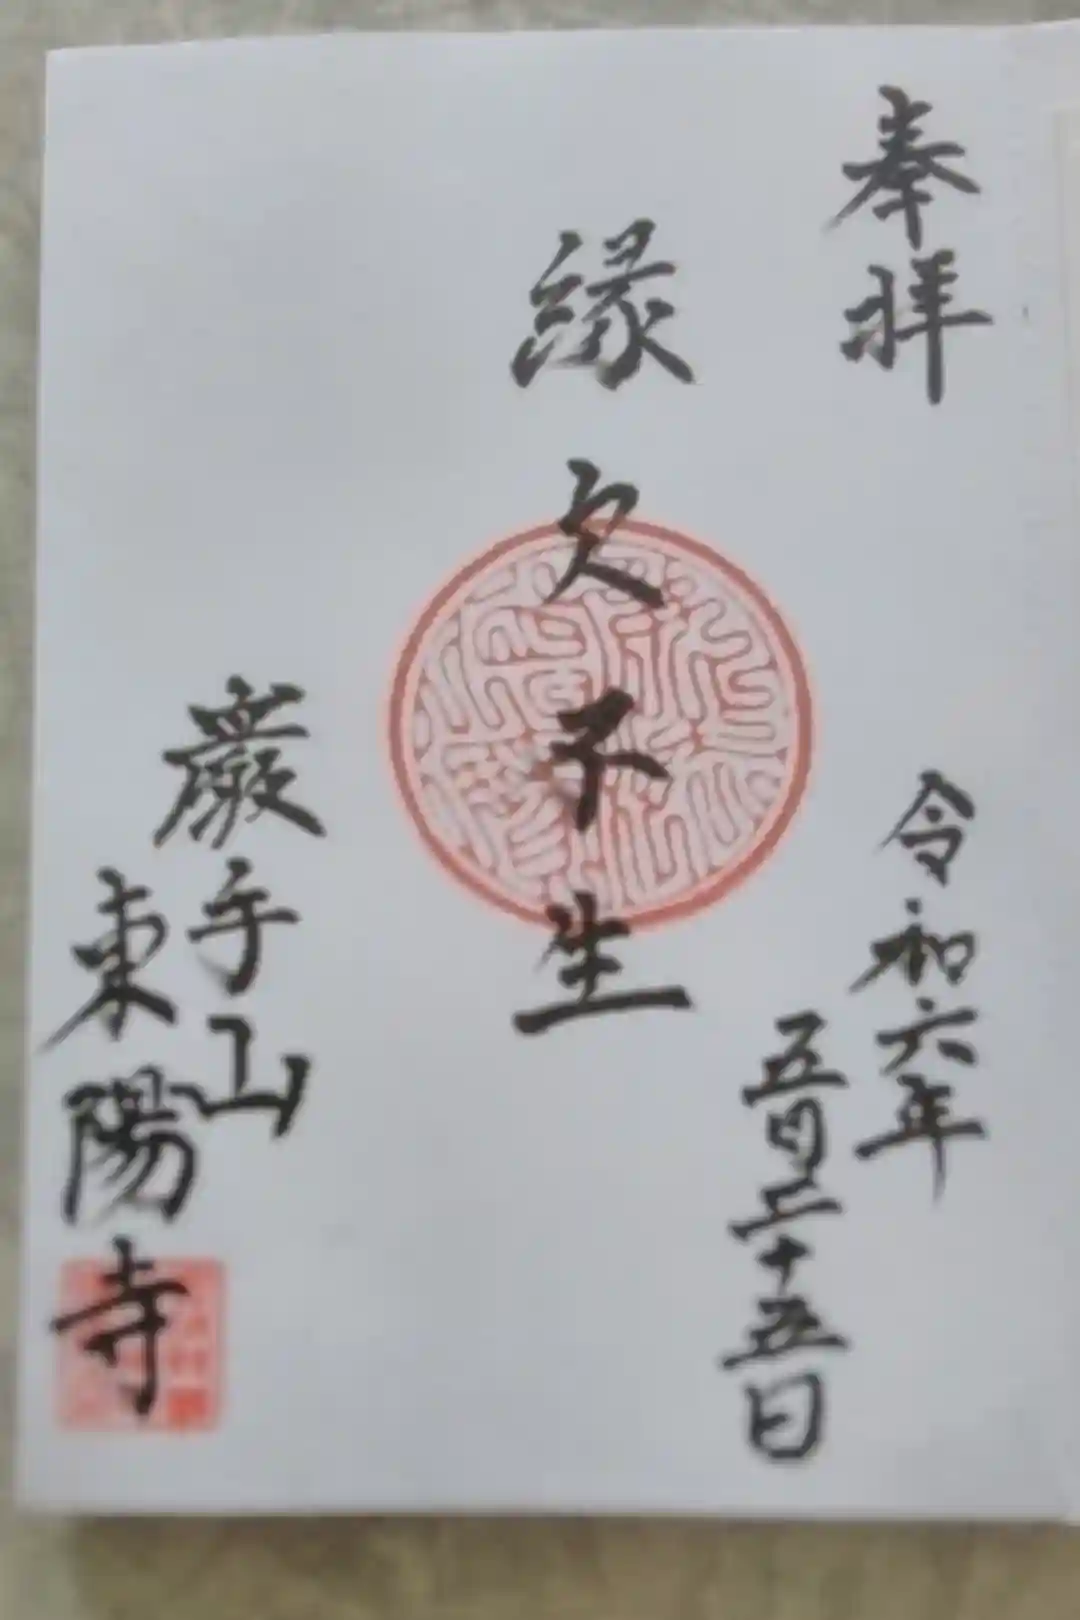 奉拝
令和六年
五月二十五日
縁欠不生
巌手山
東陽寺